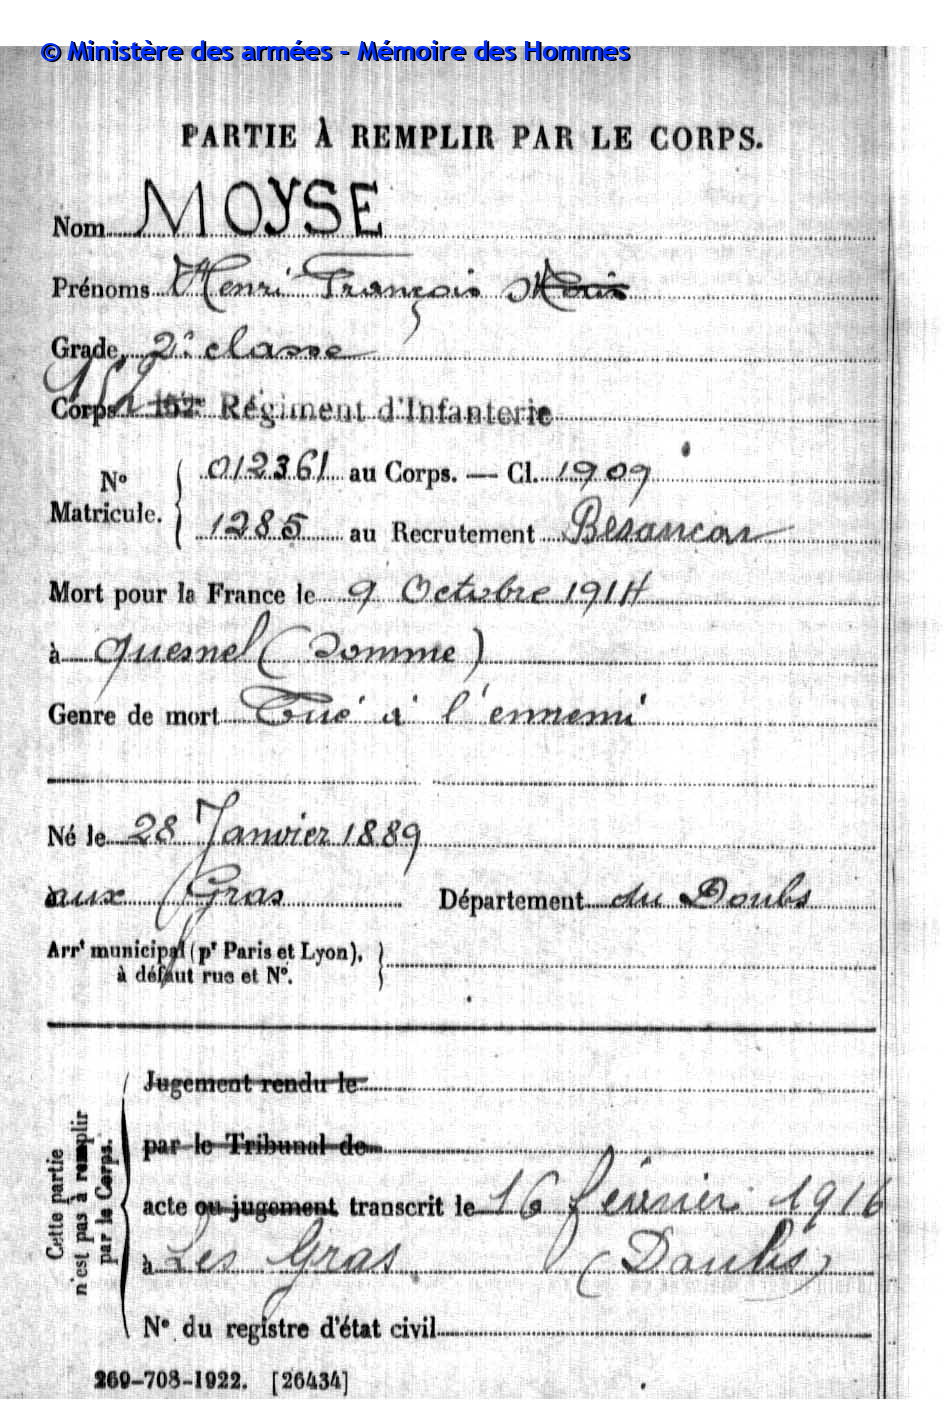 © Ministère des armées - Mémoire des Hommes
PARTIE À REMPLIR PAR LE CORPS.
Nom MOYSE
Prénoms Henri François
Grade 2e classe
Corps 152e Régiment d'Infanterie
N° Matricule. 012361 au Corps. — Cl. 1909
1285 au Recrutement Besançon
Mort pour la France le 9 Octobre 1914
à Quesnel (Somme)
Genre de mort Tué à l'ennemi
Né le 28 Janvier 1889
aux Gras Département du Doubs
Arrt municipal (pr Paris et Lyon),
à défaut rue et N°.
Cette partie n'est pas à remplir par le Corps.
Jugement rendu le
par le Tribunal de
acte ou jugement transcrit le 16 février 1916
à Les Gras (Doubs)
N° du registre d'état civil
269-708-1922. [26434]